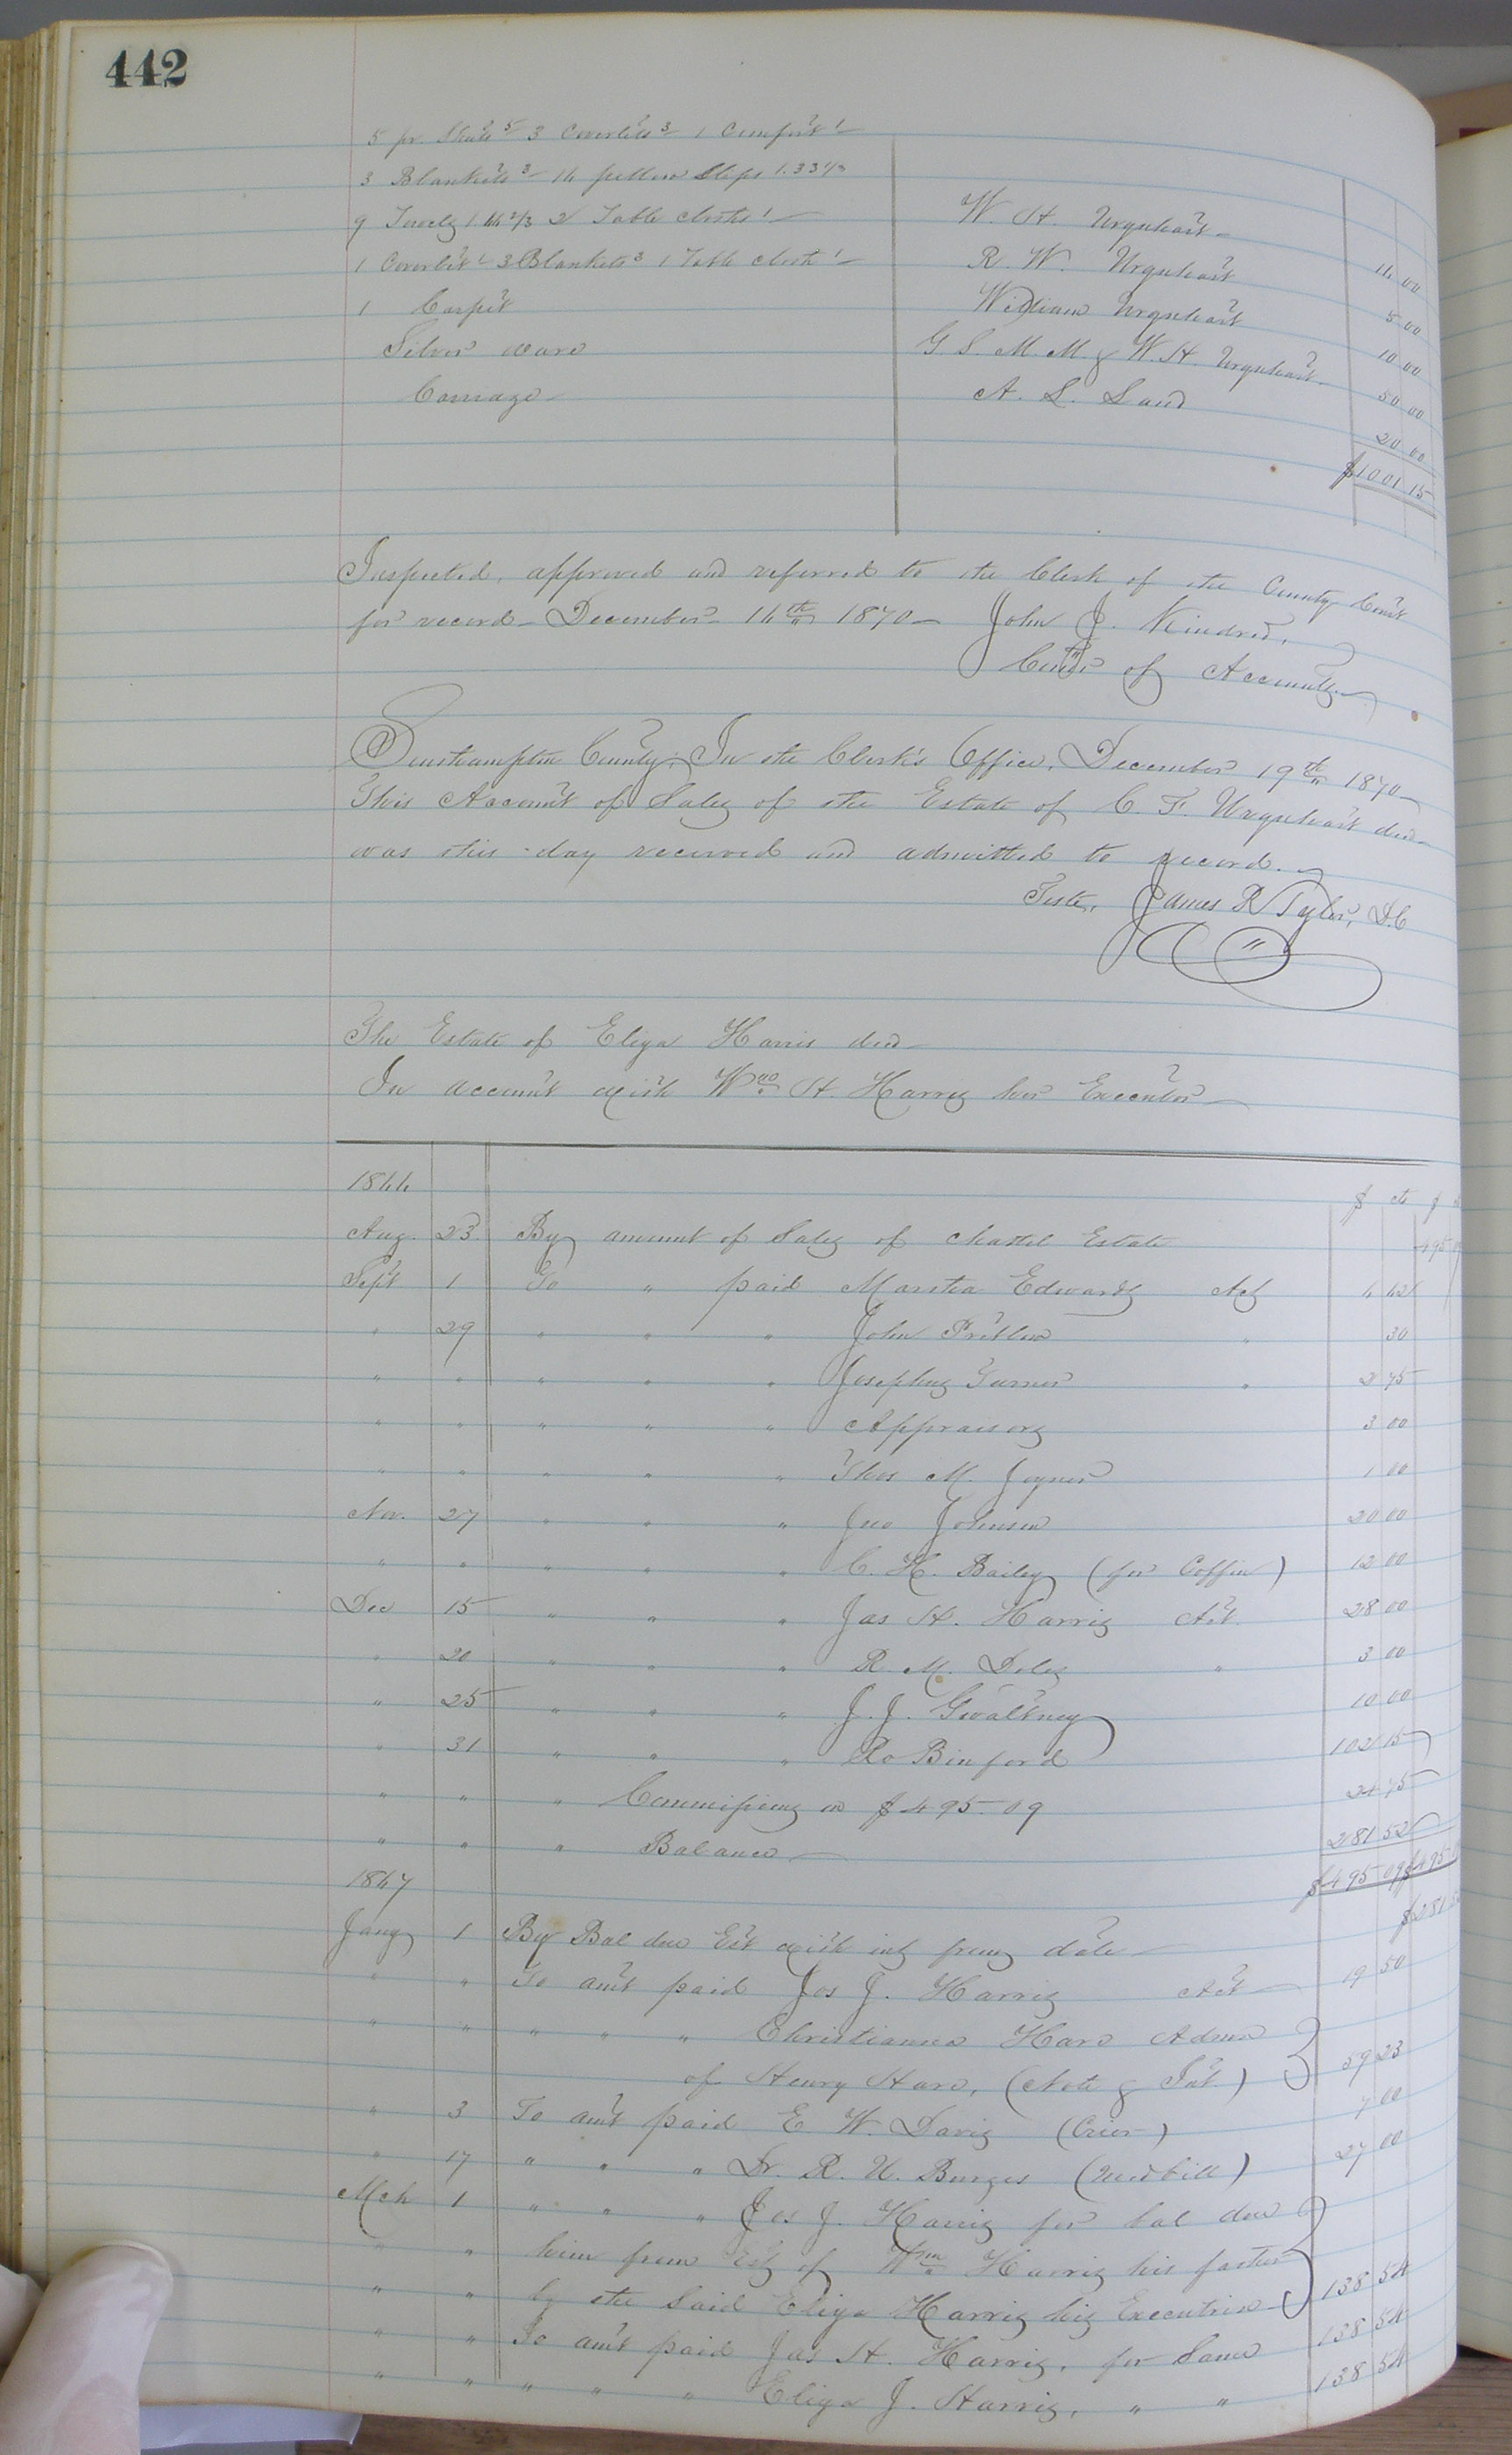 442
5 pr. Sheets 5 – 3 Coverlets 3 – 1 Comfort 1 –
3 Blankets 3 – 16 pillow Slips 1.33 1/3
9 Towels 1.66 2/3 2 Table cloths 1 – W. H. Urquhart – 16 00
1 Coverlet 1 – 3 Blankets 3 1 Table cloth 1 – R. W. Urquhart 5 00
1 Carpet William Urquhart 10 00
Silver ware G. S. M. M. & W. H. Urquhart. 50 00
Carriage – A. L. Land 20 00
$1001 15
Inspected, approved and referred to the Clerk of the County Court
for record – December 16th 1870 – John J. Kindred,
Comr of Accounts –
Southampton County; In the Clerk's Office, December 19th 1870 –
This Account of Sales of the Estate of C. F. Urquhart decd
was this day received and admitted to record. –
Teste, James R Tyler, D.C
The Estate of Eliza Harris decd –
In account with Wm H. Harris her Executor –
1866 $ cts $
Aug. 23 By amount of Sales of chattel Estate 495 09
Sept 1 To " paid Martha Edwards Act 4 42
" 29 " " " John Pretlow " 30
" " " " " Josephus Turner " 2 75
" " " " " Appraisors 3 00
" " " " " Thos M. Joyner 1 00
Nov. 27 " " " Jno Johnson 20 00
" " " " " C. H. Bailey (for Coffin) 12 00
Dec 15 " " " Jas H. Harris Act. 28 00
" 20 " " " R. M. Doles " 3 00
" 25 " " " J. J. Gwaltney 10 00
" 31 " " " Ro Binford 102 15
" " " Commissions on $495.09 24 75
" " " Balance – 281 52
$495 09 $495
1867 $281 52
Jany 1 By Bal due Est with int from date –
" " To amt paid Jos J. Harris Act – 19 50
" " " " " Christianna Hare Admx
of Henry Hare, (Note & Int) 59 23
" 3 To amt paid E. W. Davis (Crier) 7 00
" 17 " " " Dr. R. U. Burges (Med bill) 27 00
Mch 1 " " " Jos J. Harris for bal due
" " him from Est of Wm Harris his father
" " by the said Eliza Harris his Executrix – 138 54
" " To amt paid Jas H. Harris, for Same 138 54
" " " " " Eliza J. Harris, " " 138 54